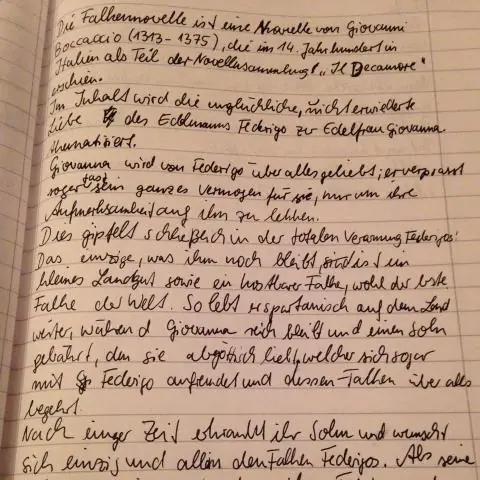 Die Falkennovelle ist eine Novelle von Giovanni
Boccaccio (1313-1375), die im 14. Jahrhundert in
Italien als Teil der Novellensammlung "Il Decamore"
erschien.
Im Inhalt wird die unglückliche, nicht erwiederte
Liebe des Edelmanns Federigo zur Edelfrau Giovanna
thematisiert.
Giovanna wird von Federigo über alles geliebt; er verprasst
sogar fast sein ganzes Vermögen für sie, nur um ihre
Aufmerksamkeit auf ihn zu lenken.
Dies gipfelt schließlich in der totalen Verarmung Federigos:
Das einzige, was ihm noch bleibt, sind ist ein
kleines Landgut sowie ein kostbarer Falke, wohl der beste
Falke der Welt. So lebt er spartanisch auf dem Land
weiter, während Giovanna reich bleibt und einen Sohn
gebährt, den sie abgöttisch liebt, welcher sich sogar
mit Federigo anfreundet und dessen Falken über alles
begehrt.
Nach einiger Zeit erkrankt ihr Sohn und wünscht
sich einzig und allein den Falken Federigos. Als seine